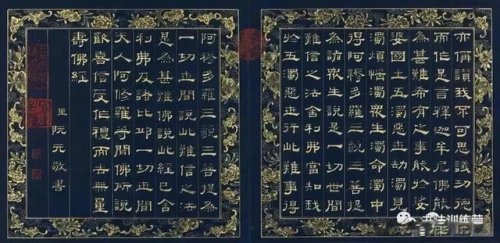 亦稱讚我不可思議功德
而作是言釋迦牟尼佛能
為甚難希有之事能於娑
婆國土五濁惡世劫濁見
濁煩惱濁眾生濁命濁中
得阿耨多羅三藐三菩提
為諸眾生說是一切世間
難信之法舍利弗當知我
於五濁惡世行此難事得
阿耨多羅三藐三菩提為
一切世間說此難信之法
是為甚難佛說此經已舍
利弗及諸比丘一切世間
天人阿修羅等聞佛所說
歡喜信受作禮而去無量
壽佛經
臣阮元敬書
训练营